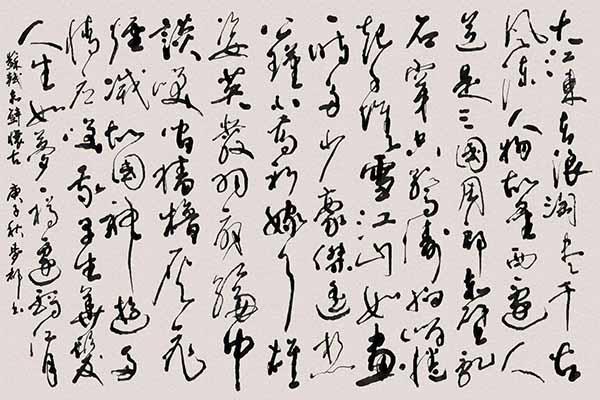 大江東去浪淘盡千古
風流人物故壘西邊人
道是三國周郎赤壁亂
石穿空驚濤拍岸捲
起千堆雪江山如畫
一時多少豪傑遙想
公瑾小喬初嫁了雄
姿英發羽扇綸巾
談笑間檣櫓灰飛
煙滅故國神遊多
情應笑我早生華髮
人生如夢一樽還酹江月
蘇軾赤壁懷古 庚子秋